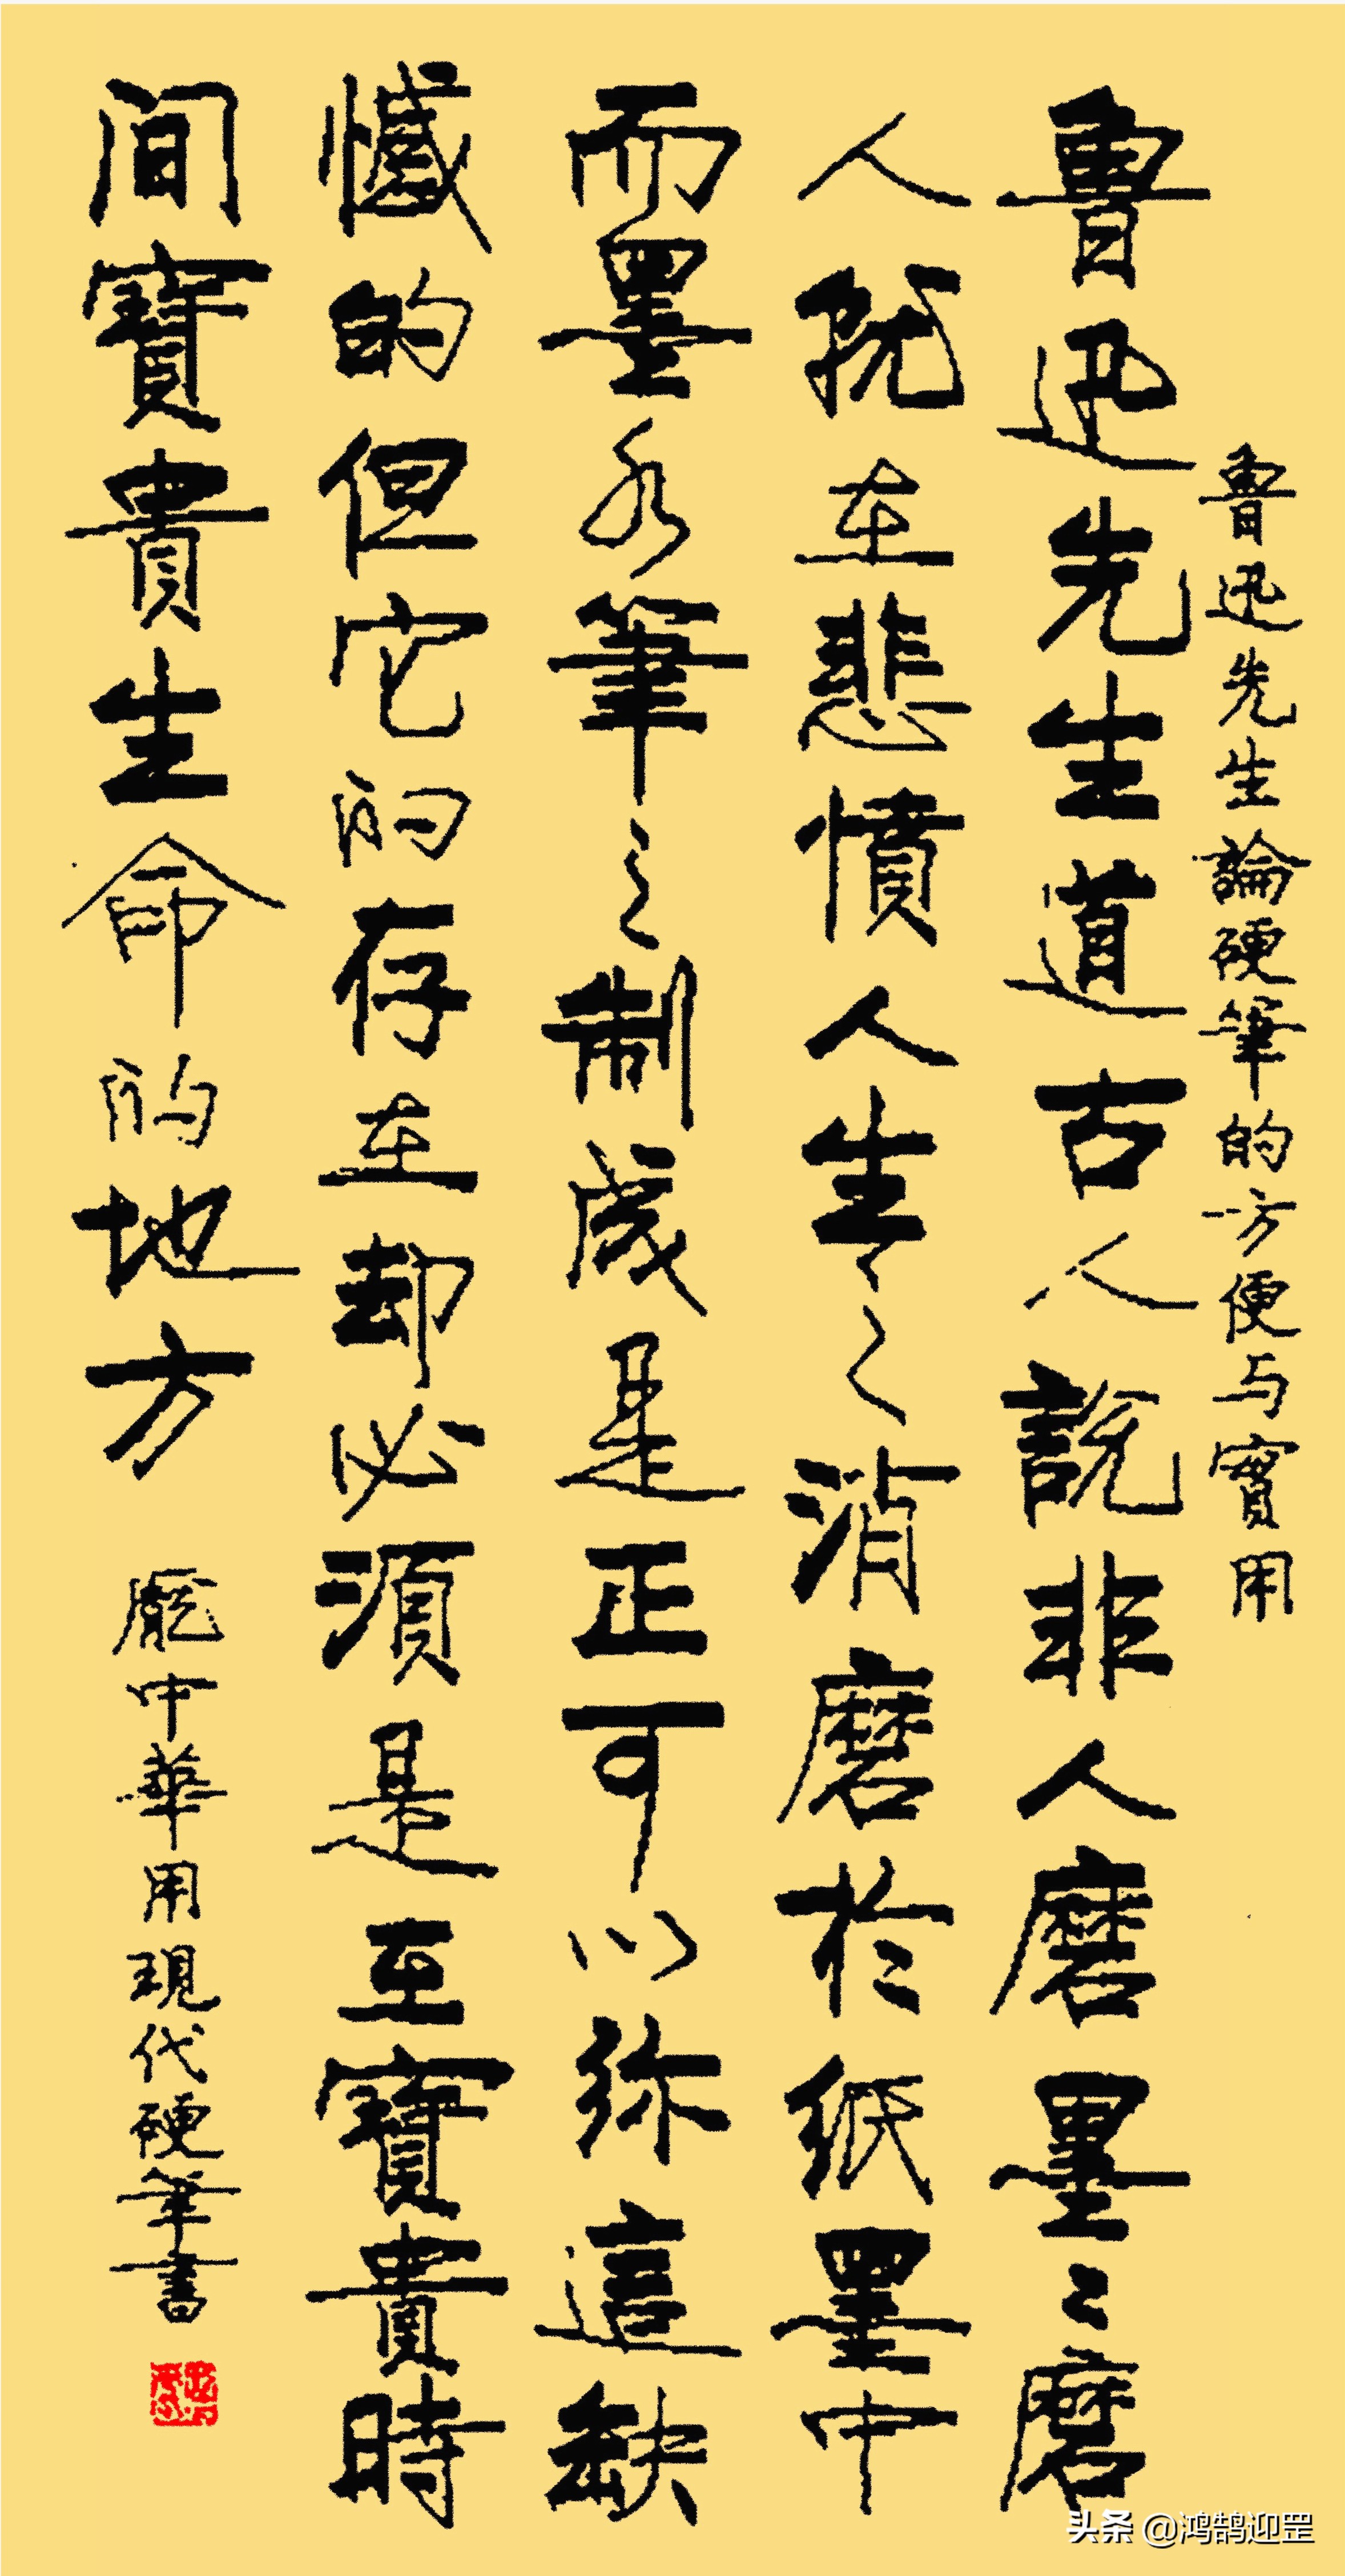 魯迅先生論硬筆的方便与實用
魯迅先生道古人說非人磨墨〻磨
人就在悲憤人生之消磨於紙墨中
而墨水筆之制成是正可以弥這缺
憾的但它的存在却必須是至寶貴時
间寶貴生命的地方
龐中華用現代硬筆書
头条 @鸿鹄迎罡